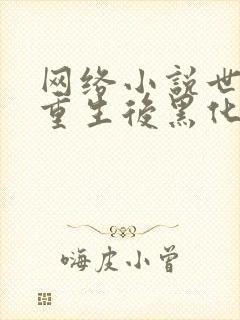 网络小说世
重生後黑化
嗨皮小曾